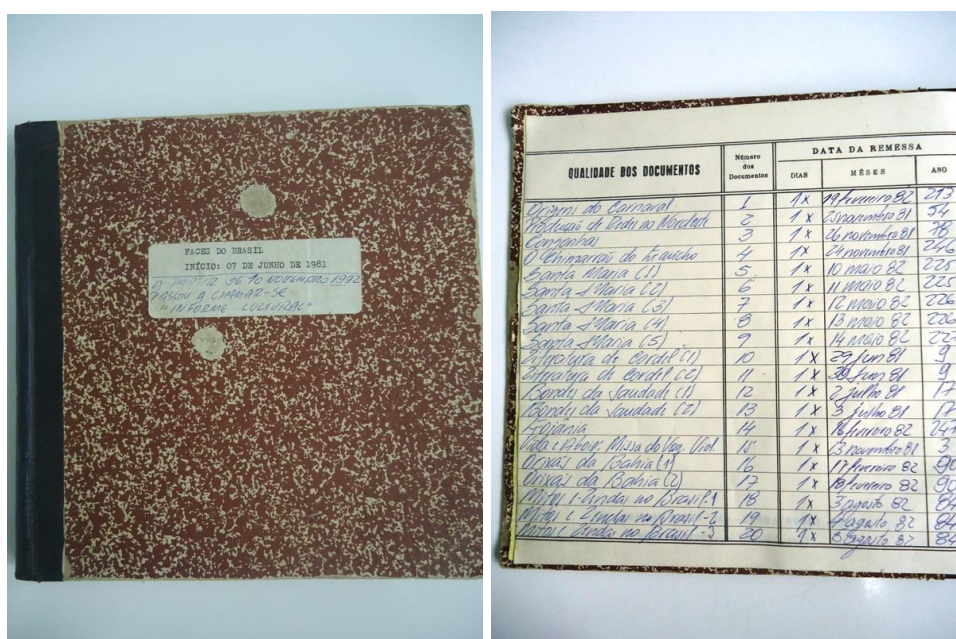 FACES DO BRASIL
INÍCIO: 07 DE JUNHO DE 1981
A PARTIR DE 10 NOVEMBRO 1992
PASSOU A CHAMAR-SE
"INFORME CULTURAL"
QUALIDADE DOS DOCUMENTOS
Número dos Documentos
DATA DA REMESSA
DIAS MÊSES ANO
Origens do Carnaval 1 1x 19 fevereiro 82 213
Produção de Redes no Nordeste 2 1x 25 novembro 81 54
Congonhas 3 1x 26 novembro 81 78
O Chimarrão do Gaúcho 4 1x 24 novembro 81 246
Santa Maria (1) 5 1x 10 maio 82 225
Santa Maria (2) 6 1x 11 maio 82 225
Santa Maria (3) 7 1x 12 maio 82 226
Santa Maria (4) 8 1x 13 maio 82 226
Santa Maria (5) 9 1x 14 maio 82
Literatura de Cordel (1) 10 1x 29 jun 81 9
Literatura de Cordel (2) 11 1x 30 jun 81 9
Bondes da Saudade (1) 12 1x 2 julho 81 17
Bondes da Saudade (2) 13 1x 3 julho 81 17
Goiânia 14 1x 16 fevereiro 82
Missa do Vaq. 15 1x 13 novembro 81 3
Orixás da Bahia (1) 16 1x 17 fevereiro 82 90
Orixás da Bahia (2) 17 1x 18 fevereiro 82 90
Mitos e Lendas no Brasil-1 18 1x 3 agosto 82 84
Mitos e Lendas no Brasil-2 19 1x 4 agosto 82 84
Mitos e Lendas no Brasil-3 20 1x 5 agosto 82 84